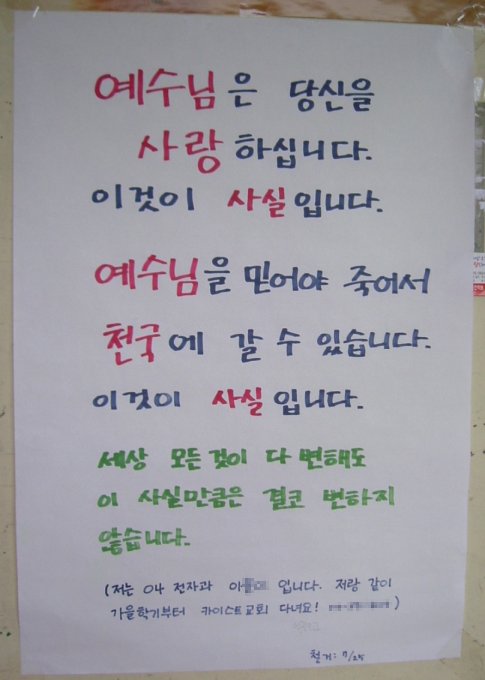 예수님은 당신을
사랑하십니다.
이것이 사실입니다.
예수님을 믿어야 죽어서
천국에 갈 수 있습니다.
이것이 사실입니다.
세상 모든것이 다 변해도
이 사실만큼은 결코 변하지
않습니다.
(저는 04 전자과 이 입니다. 저랑 같이
가을학기부터 카이스트교회 다녀요! )
철거: 7/25